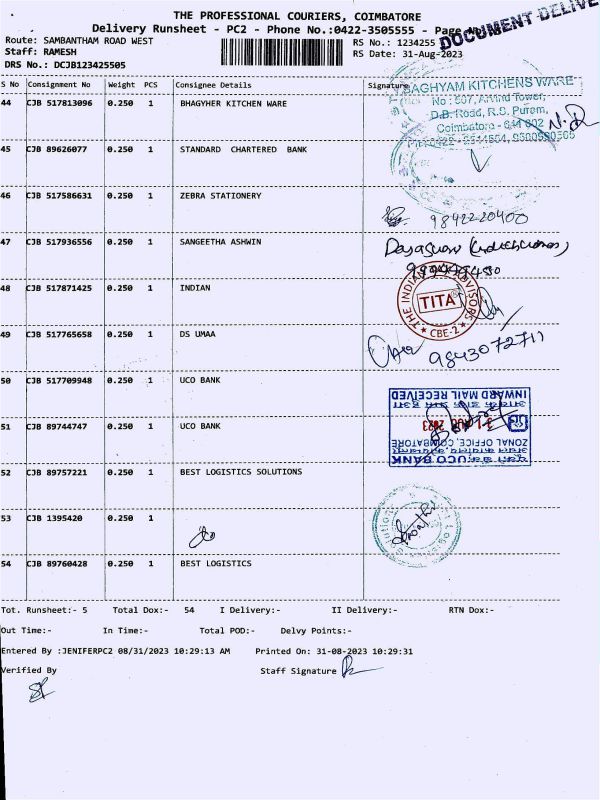 THE PROFESSIONAL COURIERS, COIMBATORE
Delivery Runsheet - PC2 - Phone No.:0422-3505555 - Page
DOCUMENT DELIVE
Route: SAMBANTHAM ROAD WEST
RS No.: 1234255
Staff: RAMESH
RS Date: 31-Aug-2023
DRS No.: DCJB123425505
S No Consignment No Weight PCS Consignee Details Signature
44 CJB 517813096 0.250 1 BHAGYHER KITCHEN WARE
BAGHYAM KITCHENS WARE
No : 507, Arvind Tower,
D.B. Road, R.S. Puram,
Coimbatore - 641 002
45 CJB 89626077 0.250 1 STANDARD CHARTERED BANK
46 CJB 517586631 0.250 1 ZEBRA STATIONERY
9842220400
47 CJB 517936556 0.250 1 SANGEETHA ASHWIN
48 CJB 517871425 0.250 1 INDIAN
TITA
CBE-2
49 CJB 517765658 0.250 1 DS UMAA
9843072711
50 CJB 517709948 0.250 1 UCO BANK
INWARD MAIL RECEIVED
51 CJB 89744747 0.250 1 UCO BANK
2023
ZONAL OFFICE, COIMBATORE
UCO BANK
52 CJB 89757221 0.250 1 BEST LOGISTICS SOLUTIONS
53 CJB 1395420 0.250 1
54 CJB 89760428 0.250 1 BEST LOGISTICS
Tot. Runsheet:- 5 Total Dox:- 54 I Delivery:- II Delivery:- RTN Dox:-
Out Time:- In Time:- Total POD:- Delvy Points:-
Entered By :JENIFERPC2 08/31/2023 10:29:13 AM Printed On: 31-08-2023 10:29:31
Verified By
Staff Signature